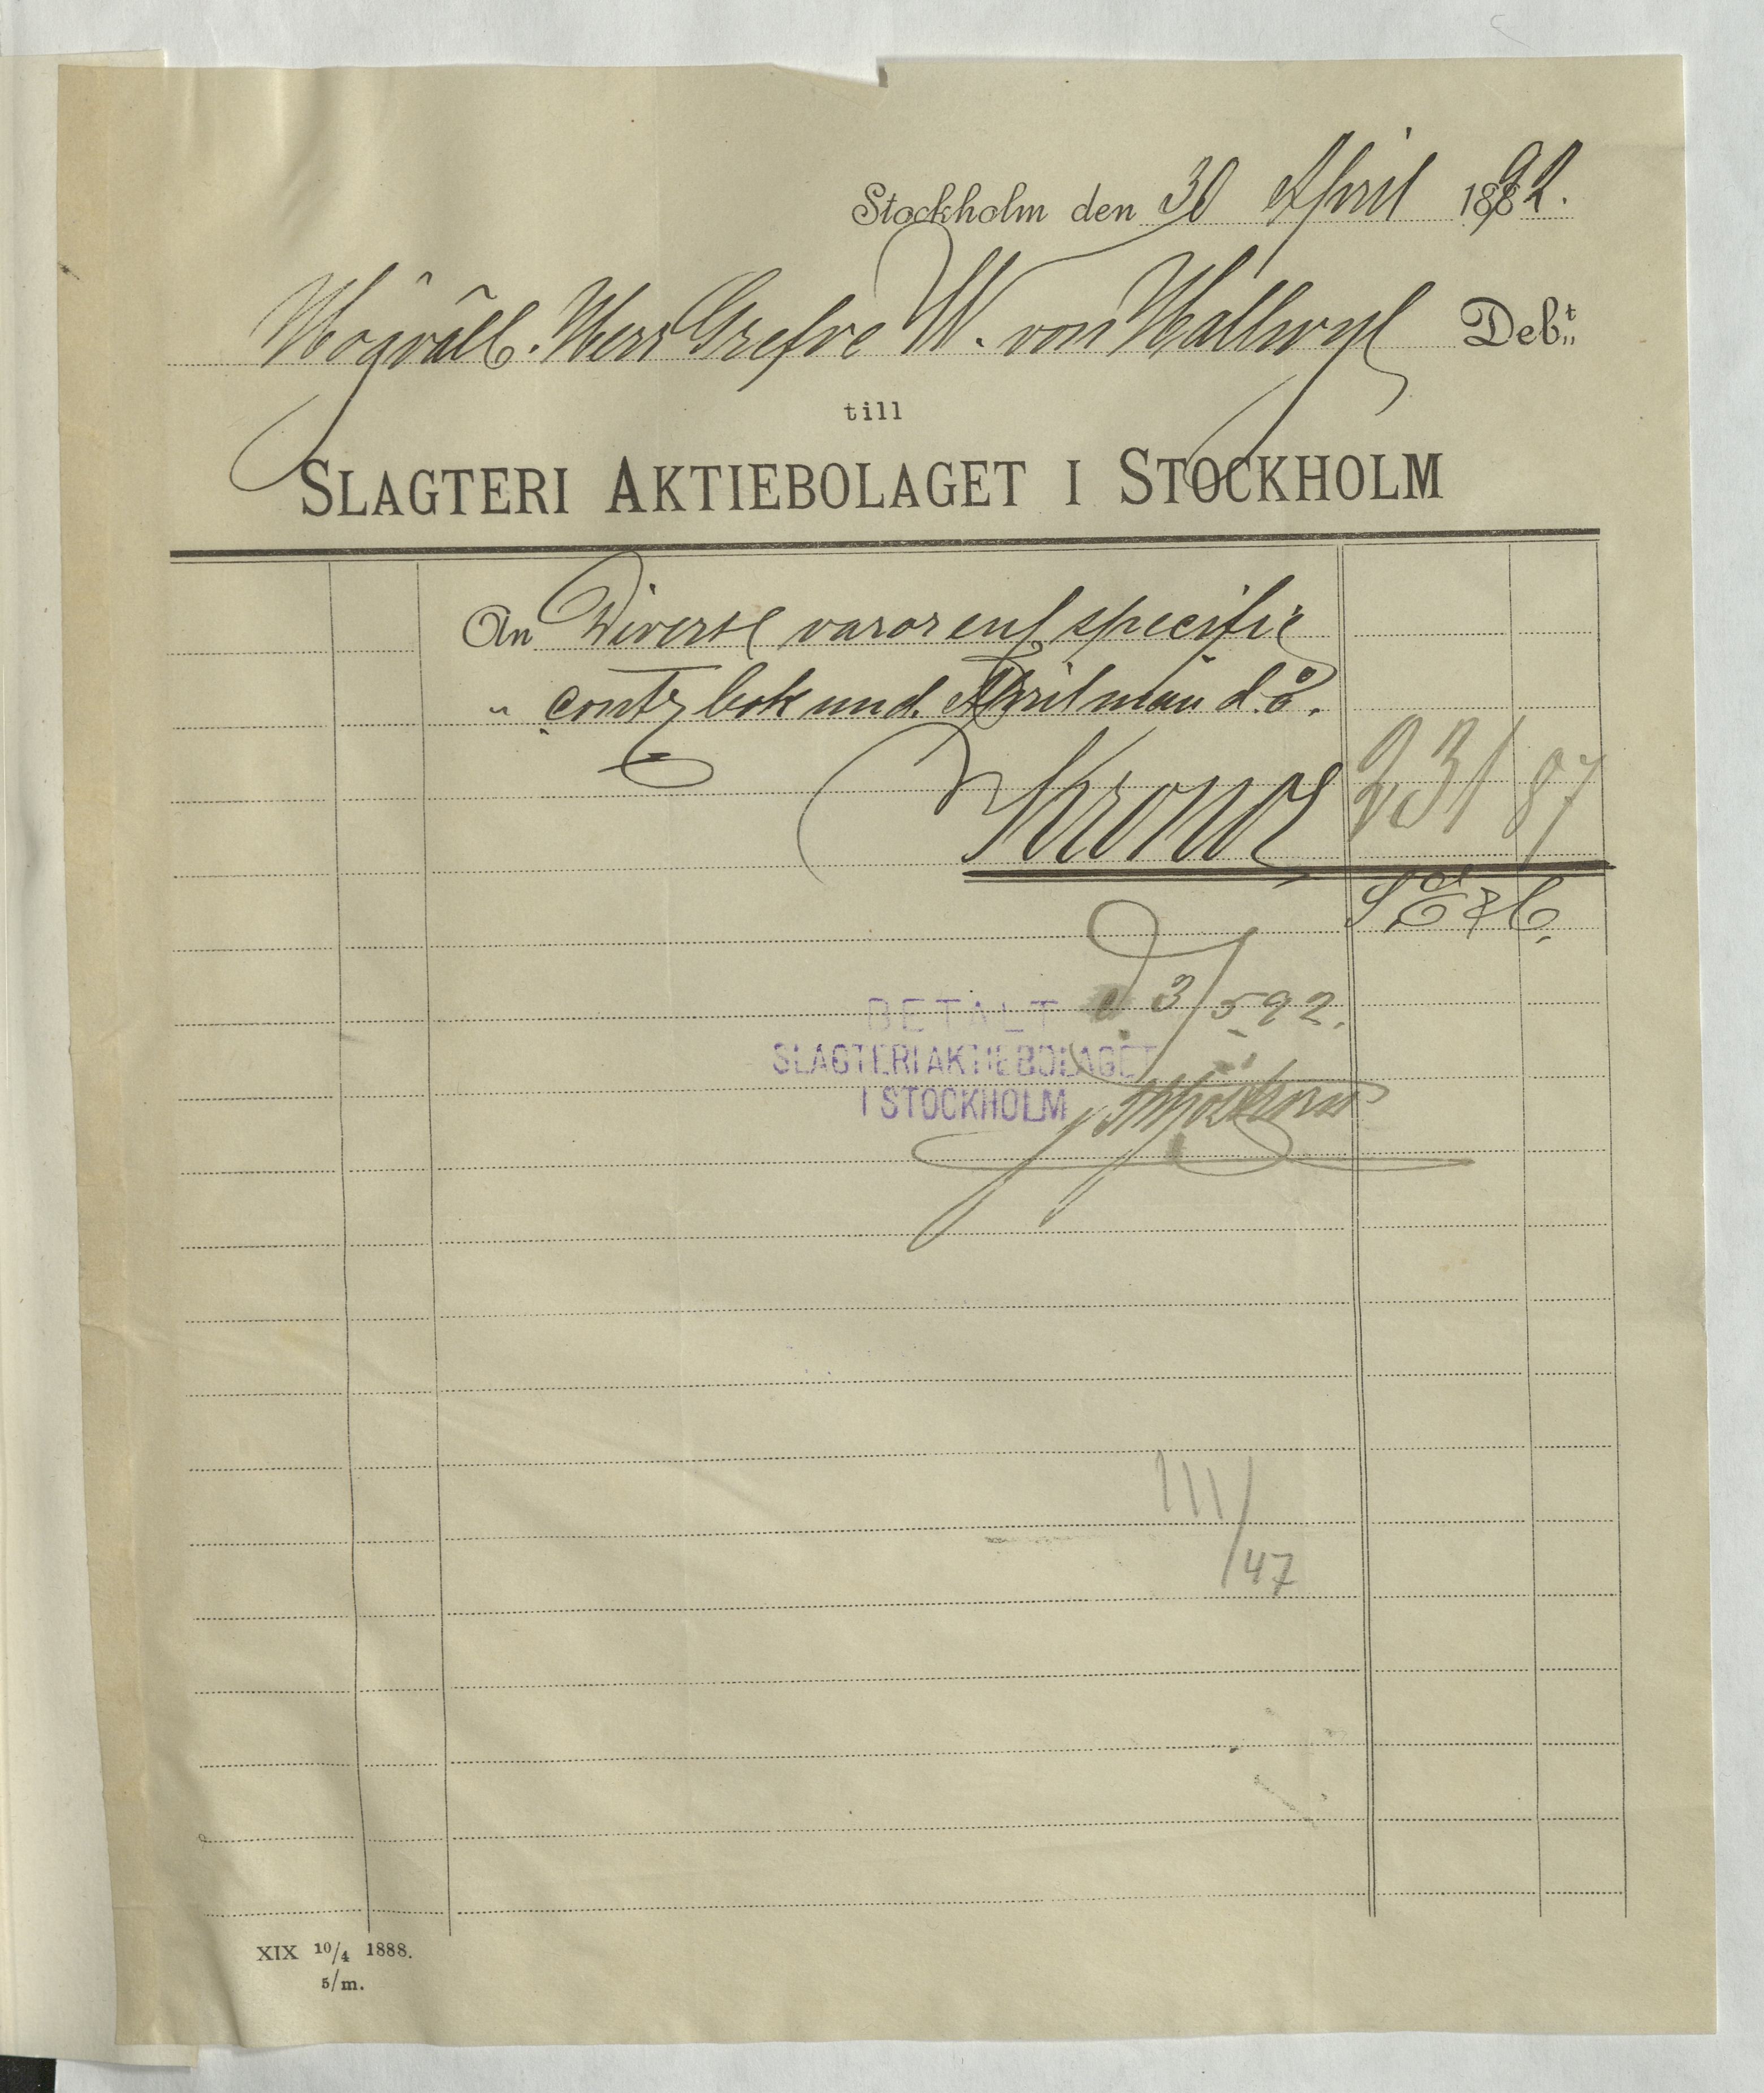 Stockholm den 30 April 1892.
Högvälb. Herr Grefve W. von Hallwyl Deb:t
till
SLAGTERI AKTIEBOLAGET I STOCKHOLM
An Diverse varor enl specifie
" contr bok und. April mån d. å.
Kronor 231 87
S. E. & O.
d 3/5 92.
BETALT
SLAGTERIAKTIEBOLAGET
I STOCKHOLM
111/47
XIX 10/4 1888.
5/m.